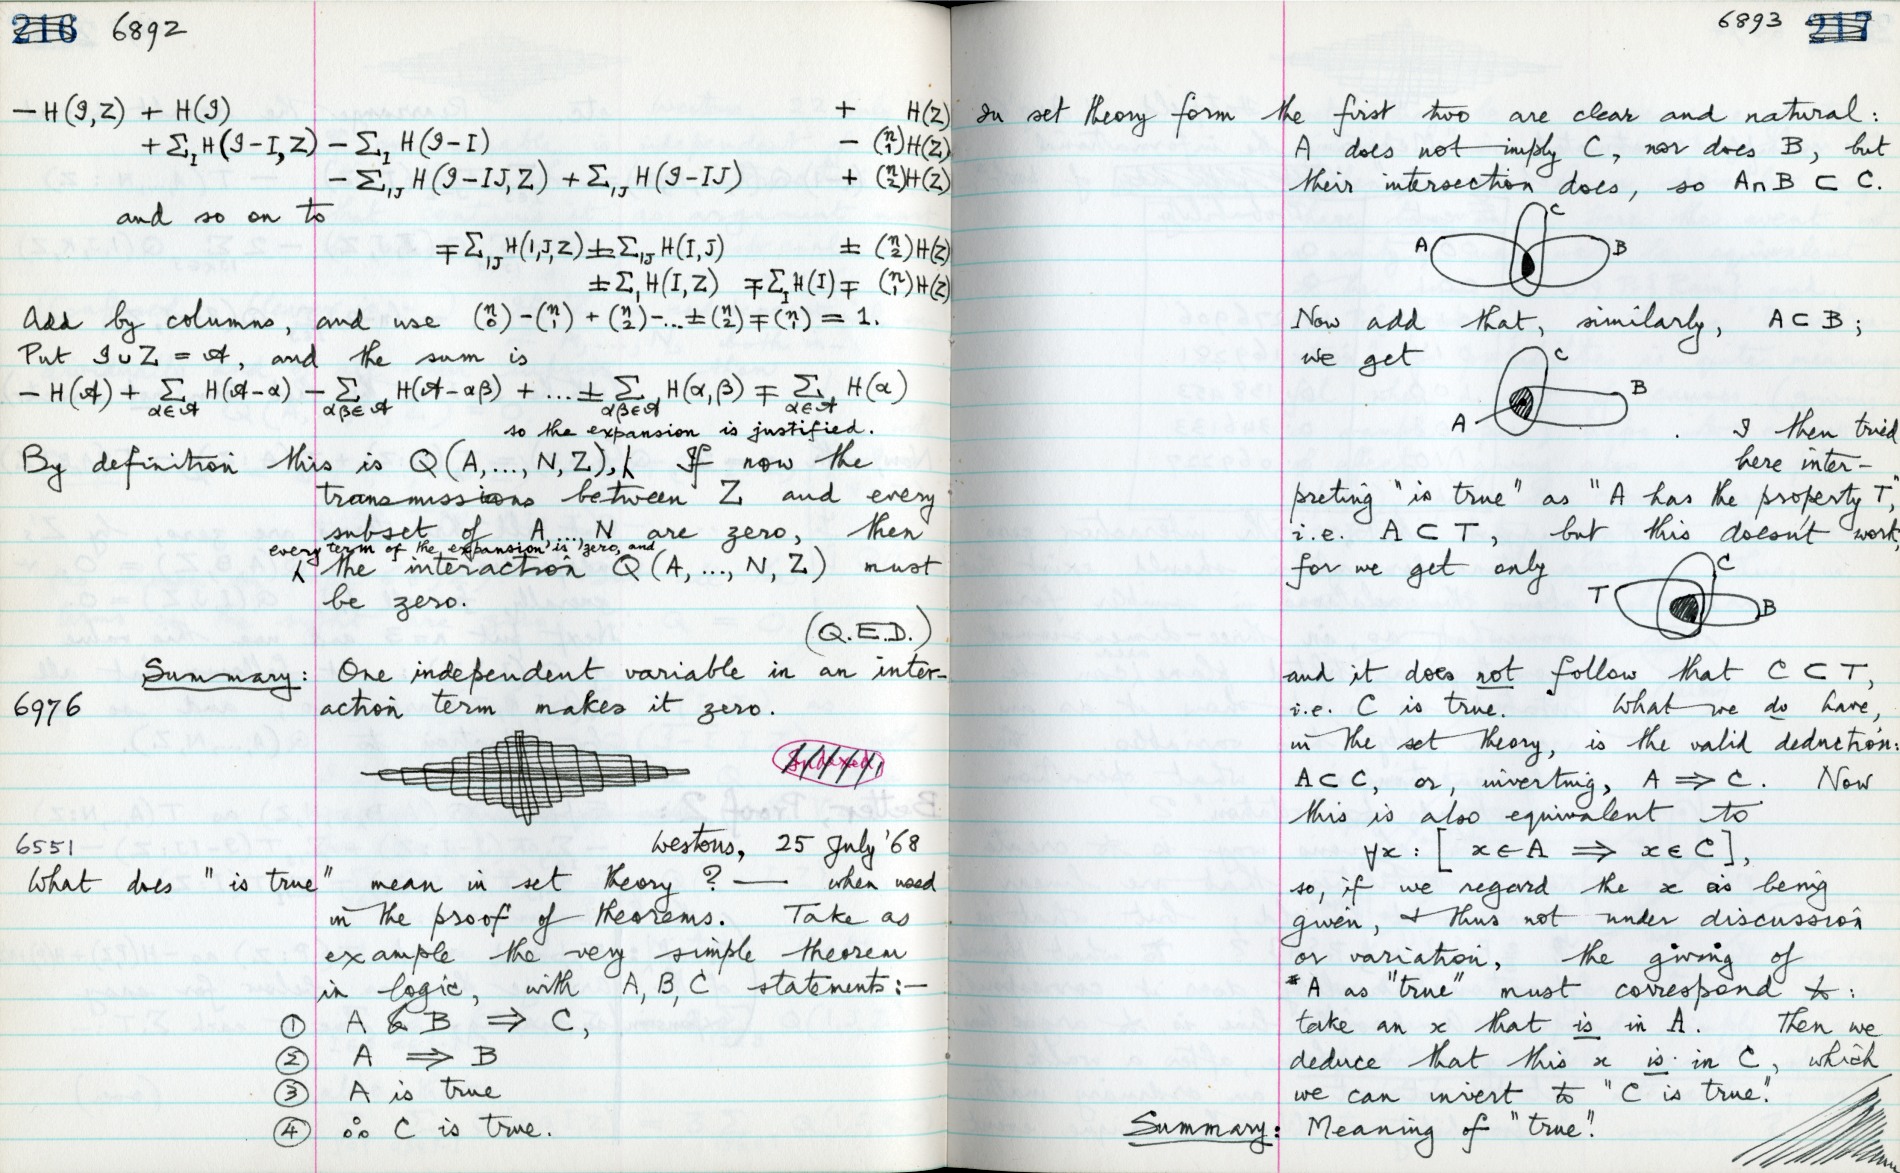 216 6892
− H(𝓘,Z) + H(𝓘) + H(Z)
+ Σ_I H(𝓘−I,Z) − Σ_I H(𝓘−I) − (n 1)H(Z)
− Σ_IJ H(𝓘−IJ,Z) + Σ_IJ H(𝓘−IJ) + (n 2)H(Z)
and so on to
∓ Σ_IJ H(I,J,Z) ± Σ_IJ H(I,J) ± (n 2)H(Z)
± Σ_I H(I,Z) ∓ Σ_I H(I) ∓ (n 1)H(Z)
Add by columns, and use (n 0) − (n 1) + (n 2) − ... ± (n 2) ∓ (n 1) = 1.
Put 𝓘 ∪ Z = 𝒜, and the sum is
− H(𝒜) + Σ_α∈𝒜 H(𝒜−α) − Σ_αβ∈𝒜 H(𝒜−αβ) + ... ± Σ_αβ∈𝒜 H(α,β) ∓ Σ_α∈𝒜 H(α)
so the expansion is justified.
By definition this is Q(A,...,N,Z), If now the
transmissions between Z and every
subset of A,...,N are zero, then
every term of the expansion is zero, and
the interaction Q(A,...,N,Z) must
be zero.
(Q.E.D.)
Summary: One independent variable in an inter-
6976 action term makes it zero.
Westons, 25 July '68
6551
What does "is true" mean in set theory? — when used
in the proof of theorems. Take as
example the very simple theorem
in logic, with A, B, C statements:—
① A & B ⇒ C,
② A ⇒ B
③ A is true
④ ∴ C is true.
6893 217
In set theory form the first two are clear and natural:
A does not imply C, nor does B, but
their intersection does, so A∩B ⊂ C.
C
A B
Now add that, similarly, A ⊂ B;
we get
C
B
A
I then tried
here inter-
preting "is true" as "A has the property T",
i.e. A ⊂ T, but this doesn't work,
for we get only
C
T B
and it does not follow that C ⊂ T,
i.e. C is true. What we do have,
in the set theory, is the valid deduction:
A ⊂ C, or, inverting, A ⇒ C. Now
this is also equivalent to
∀x : [x ∈ A ⇒ x ∈ C],
so, if we regard the x as being
given, & thus not under discussion
or variation, the giving of
A as "true" must correspond to:
take an x that is in A. Then we
deduce that this x is in C, which
we can invert to "C is true".
Summary: Meaning of "true".